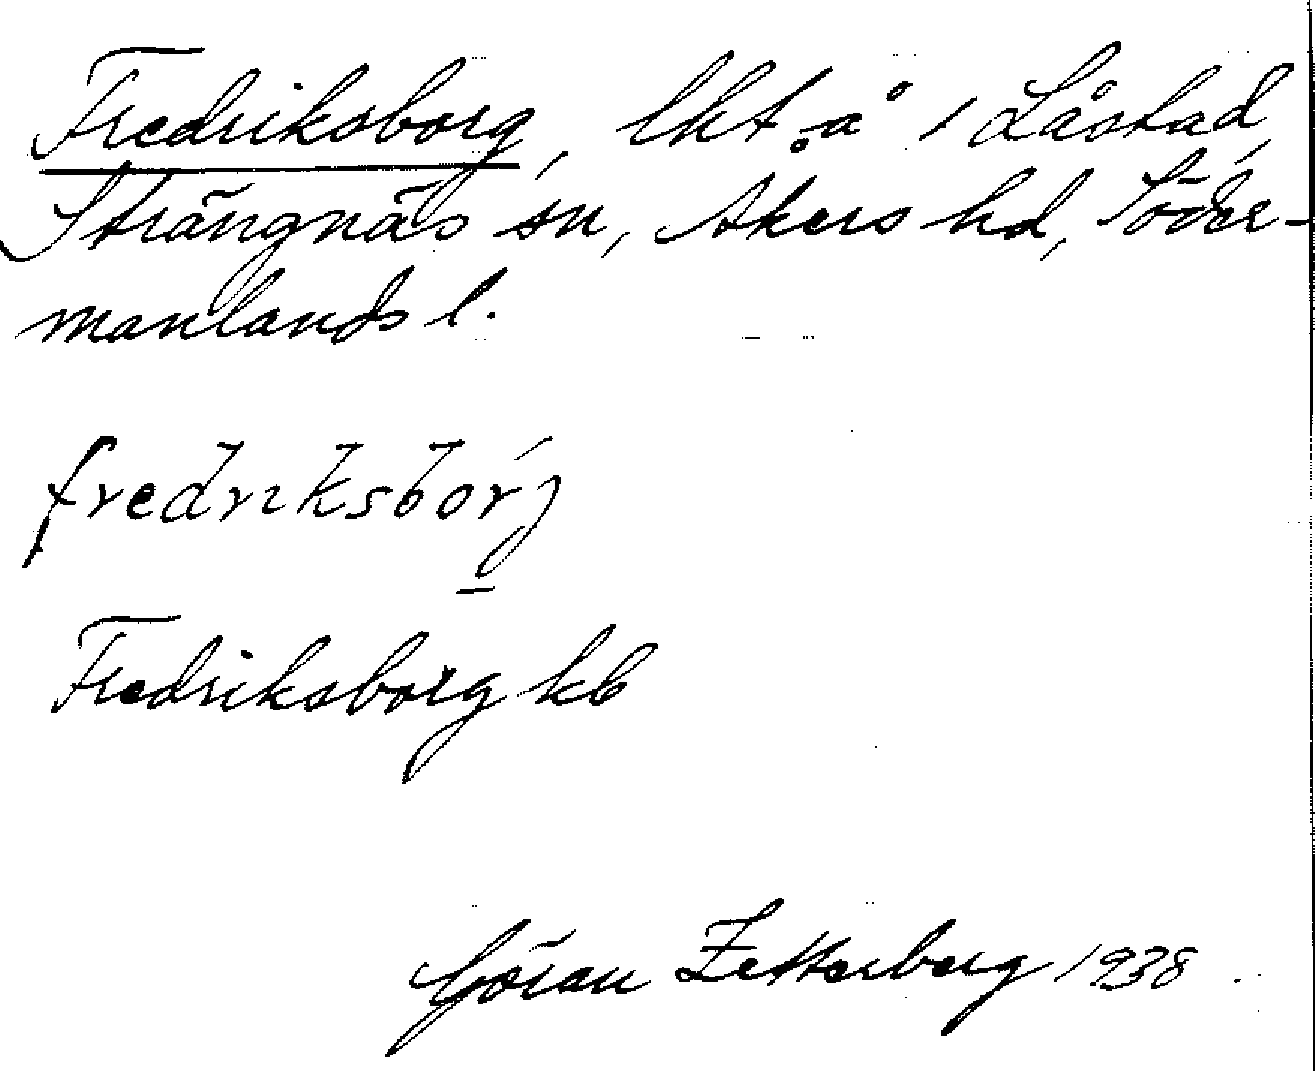 Fredriksborg, lht å 1 Låstad,
Strängnäs sn, Åkers hd, Söder-
manlands l.
fredriksborj
Fredriksborg kb
Göran Zetterberg 1938.